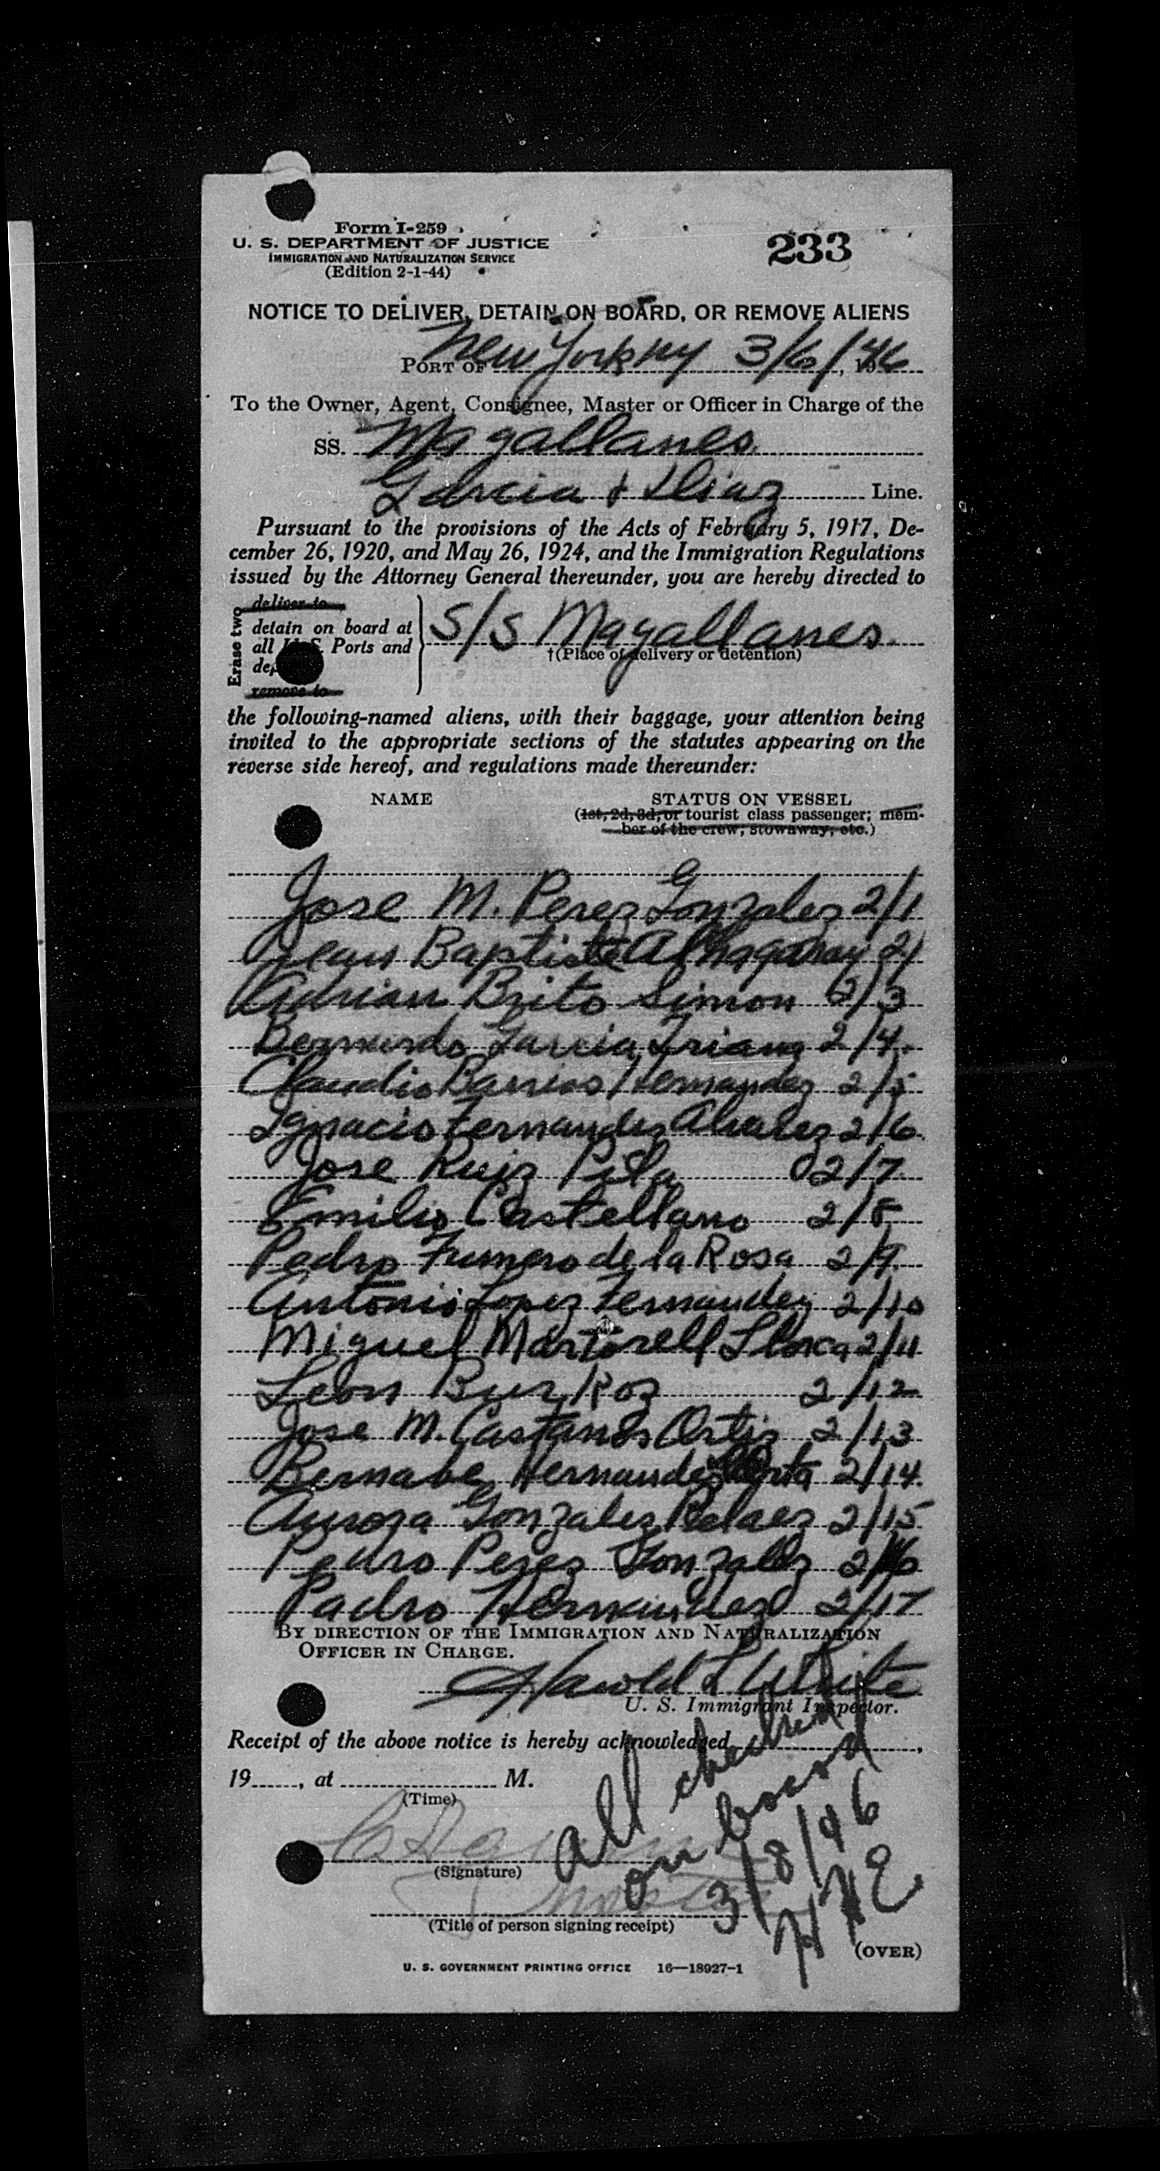 Form I-259
U. S. DEPARTMENT OF JUSTICE
IMMIGRATION AND NATURALIZATION SERVICE
(Edition 2-1-44)
233
NOTICE TO DELIVER, DETAIN ON BOARD, OR REMOVE ALIENS
PORT OF New York NY 3/6/46, 19
To the Owner, Agent, Consignee, Master or Officer in Charge of the
SS. Magallanes
Garcia & Diaz Line.
Pursuant to the provisions of the Acts of February 5, 1917, De-
cember 26, 1920, and May 26, 1924, and the Immigration Regulations
issued by the Attorney General thereunder, you are hereby directed to
Erase two
deliver to
detain on board at
all U.S. Ports and
remove to
S/S Magallanes
†(Place of delivery or detention)
the following-named aliens, with their baggage, your attention being
invited to the appropriate sections of the statutes appearing on the
reverse side hereof, and regulations made thereunder:
NAME STATUS ON VESSEL
(1st, 2d, 3d, or tourist class passenger; mem-
ber of the crew, stowaway, etc.)
Jose M. Perez Gonzalez 2/1
Jean Baptiste 2/
Adrian Brito Simon 2/3
Bernardo Garcia Triana 2/4
Claudio Barrios Hernandez 2/5
Ignacio Fernandez Alvarez 2/6
Jose Ruiz 2/7
Emilio Castellano 2/8
Pedro Fumero de la Rosa 2/9
Antonio Lopez Fernandez 2/10
Miguel Martorell 2/11
Leon 2/12
Jose M. Castanos Ortiz 2/13
Bernabe Hernandez 2/14
Aurora Gonzalez Pelaez 2/15
Pedro Perez Gonzalez 2/16
Pedro Hernandez 2/17
BY DIRECTION OF THE IMMIGRATION AND NATURALIZATION
OFFICER IN CHARGE.
Harold L White
U. S. Immigrant Inspector.
Receipt of the above notice is hereby acknowledged
19____, at ____ M.
(Time)
(Signature)
Master
(Title of person signing receipt)
All checked
on board
3/8/46
HHE
(OVER)
U. S. GOVERNMENT PRINTING OFFICE 16—18927-1